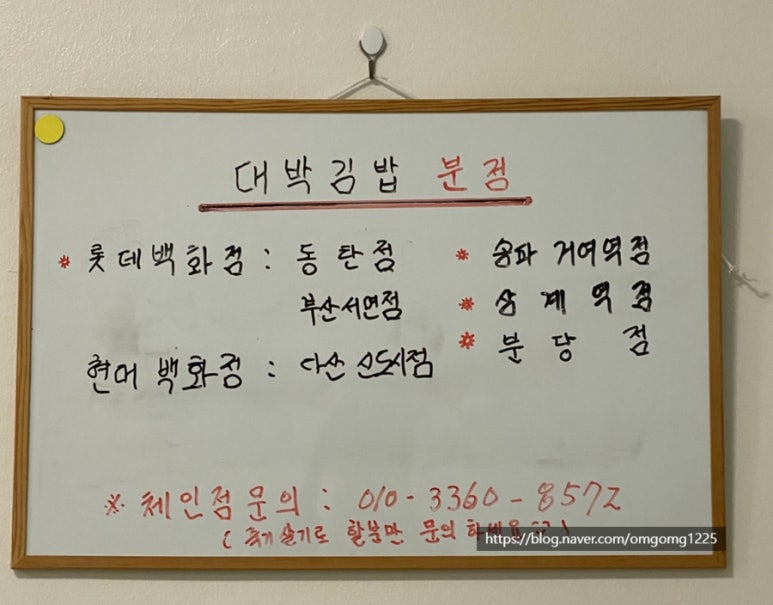 대박김밥 분점
* 롯데백화점 : 동탄점
부산서면점
현대 백화점 : 다산 신도시점
* 송파 거여역점
* 상계역점
* 분당점
※ 체인점문의 : 010-3360-8572
할분만 문의
https://blog.naver.com/omgomg1225